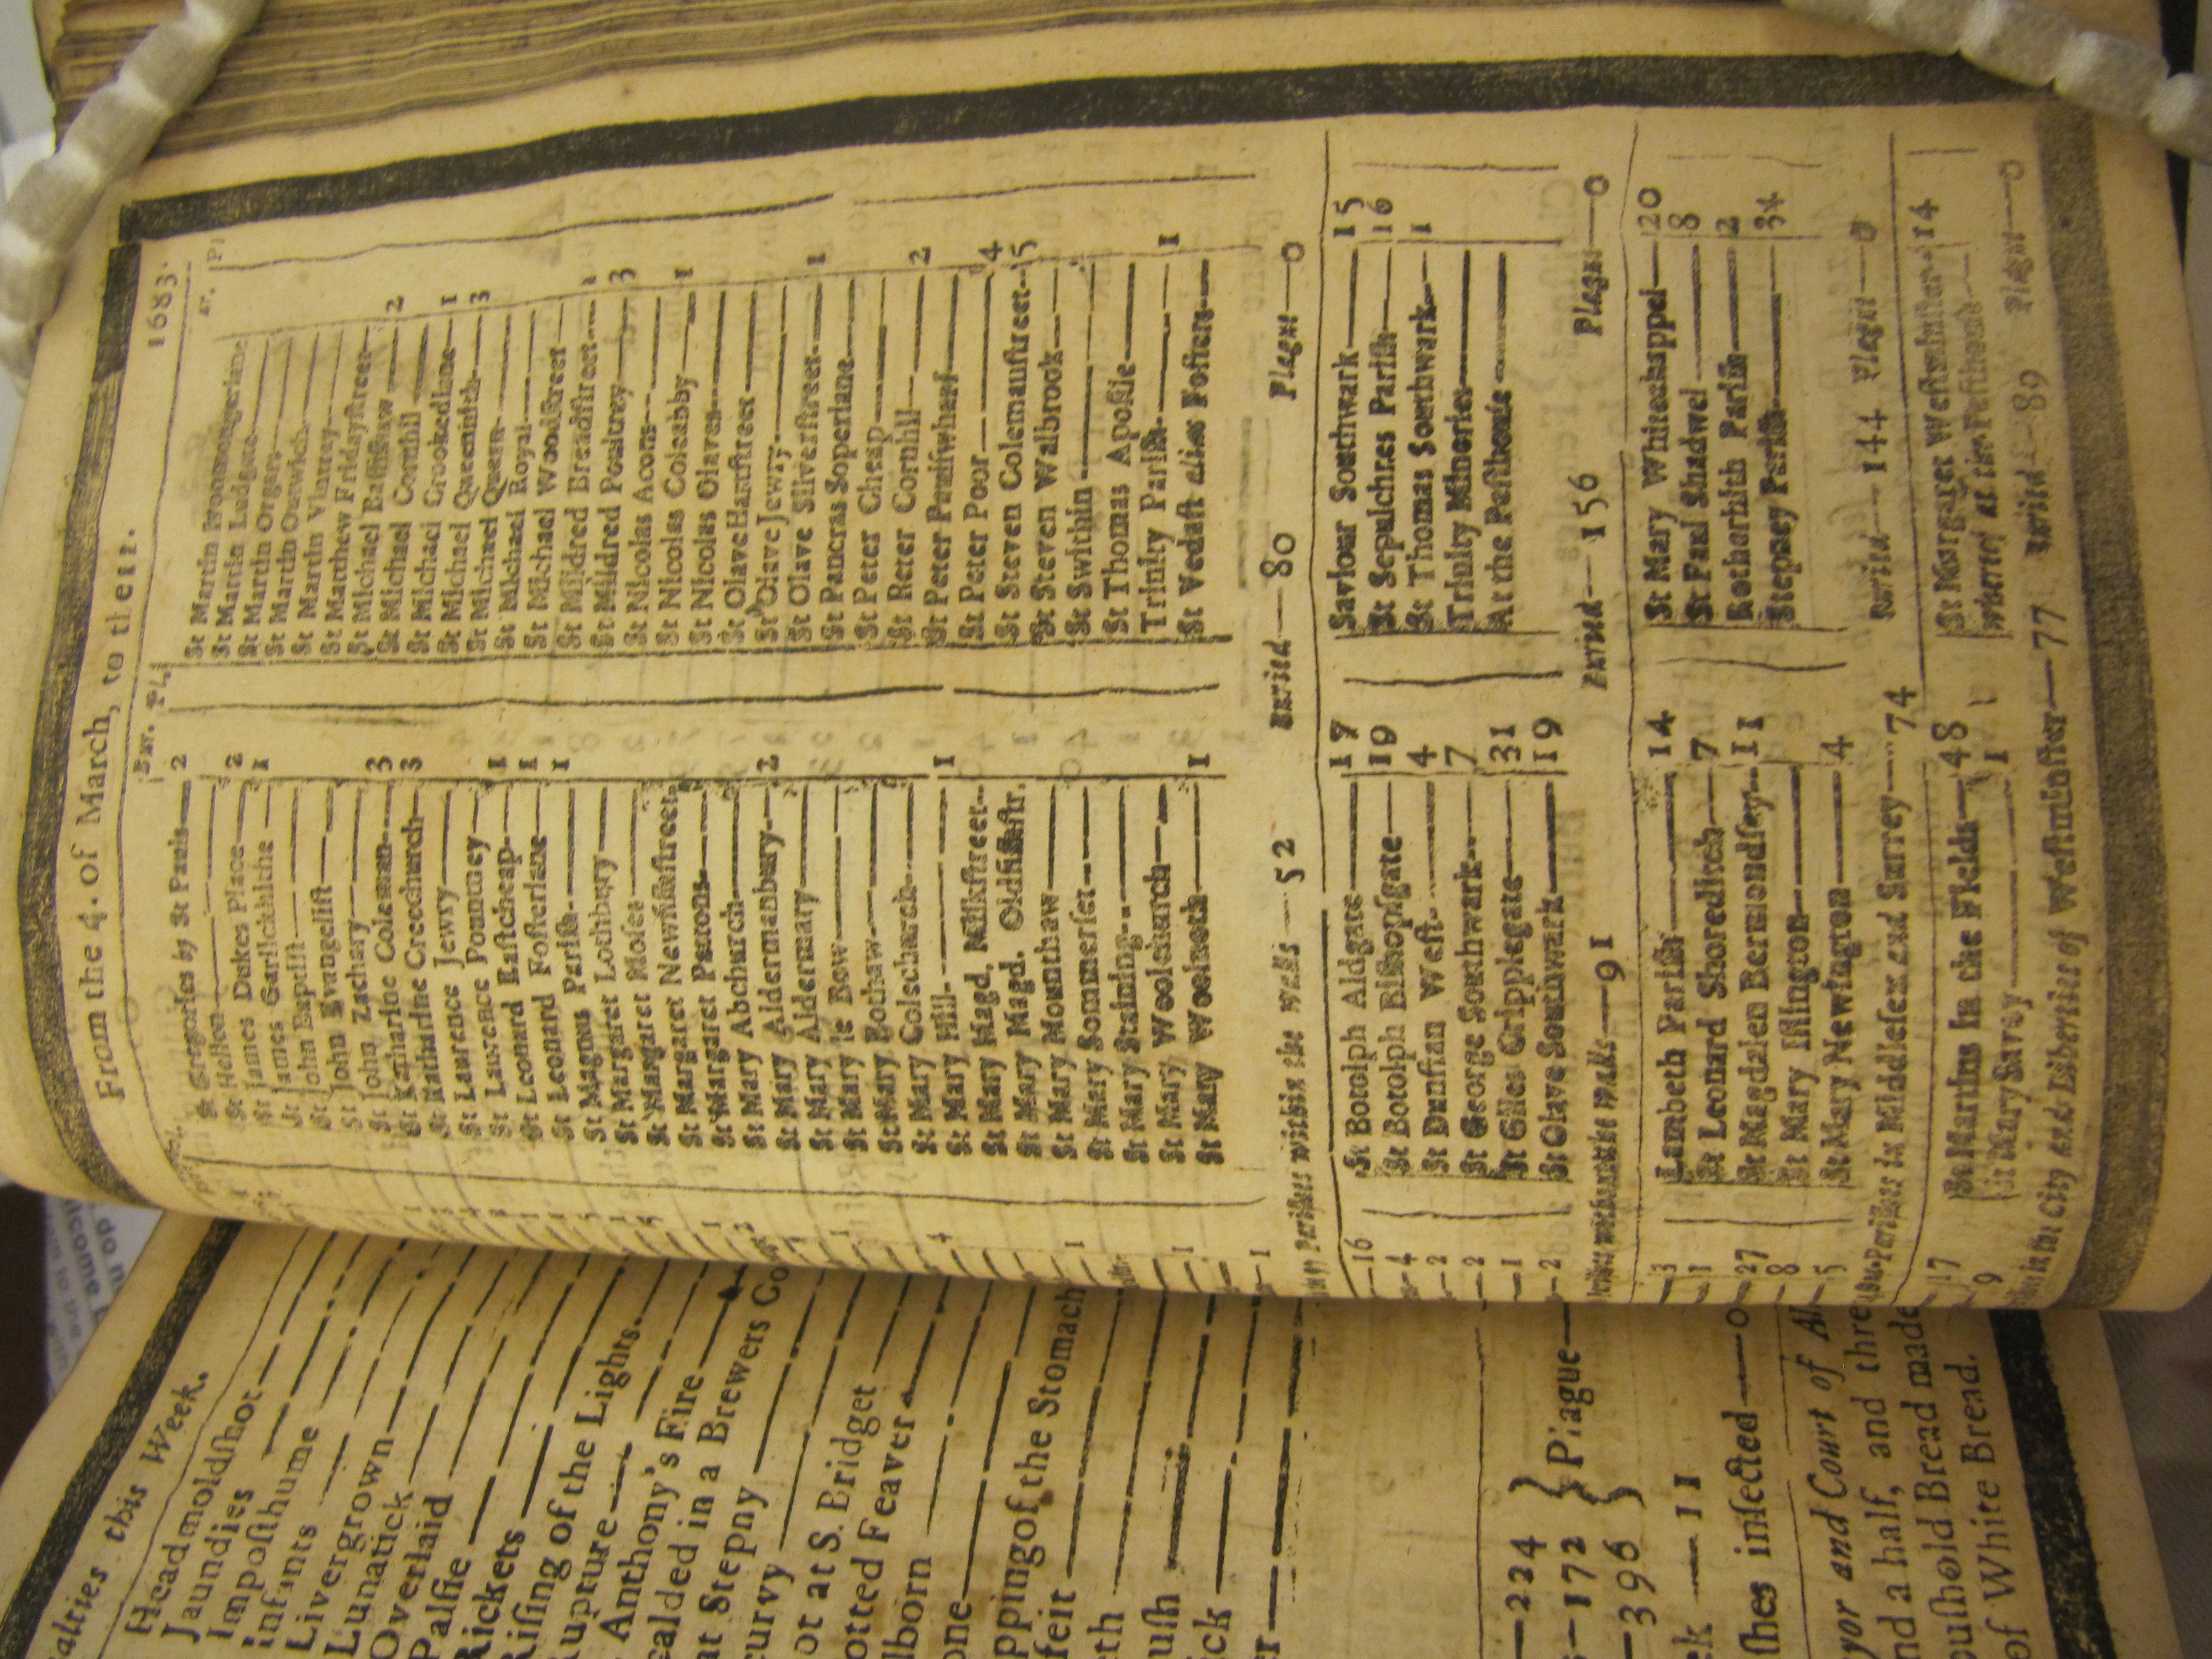 From the 4. of March, to the 11. 1683.
Bur. Pl.
St Gregories by St Pauls—2
St Hellen—
St James Dukes Place—2
St James Garlickhithe—1
St John Baptist—
St John Evangelist—
St John Zachary—
St Katharine Coleman—3
St Katharine Creechurch—3
St Lawrence Jewry—
St Laurence Pountney—
St Leonard Eastcheap—1
St Leonard Fosterlane—1
St Magnus Parish—1
St Margaret Lothbury—
St Margaret Moses—
St Margaret Newfishstreet—
St Margaret Pattons—
St Mary Abchurch—
St Mary Aldermanbury—2
St Mary Aldermary—
St Mary le Bow—
St Mary Bothaw—
St Mary Colechurch—
St Mary Hill—1
St Mary Magd. Milkstreet—
St Mary Magd. Oldfishstr.
St Mary Mounthaw—
St Mary Sommerset—
St Mary Staining—
St Mary Woolchurch—
St Mary Woolnoth—1
St Martin Ironmongerlane
St Martin Ludgate—
St Martin Orgars—
St Martin Outwich—
St Martin Vintrey—
St Matthew Fridaystreet—
St Michael Bassishaw—2
St Michael Cornhil—
St Michael Crookedlane—1
St Michael Queenhith—3
St Michael Quern—
St Michael Royal—
St Michael Woodstreet—
St Mildred Breadstreet—1
St Mildred Poultrey—3
St Nicolas Acons—
St Nicolas Coleabby—1
St Nicolas Olaves—
St Olave Hartstreet—
St Olave Jewry—
St Olave Silverstreet—1
St Pancras Soperlane—
St Peter Cheap—
St Peter Cornhil—2
St Peter Paulswharf—
St Peter Poor—4
St Steven Colemanstreet—5
St Steven Walbrook—
St Swithin—
St Thomas Apostle—
Trinity Parish—1
St Vedast alias Fosters—
Parishes within the walls—52 Buried—80 Plague—0
—16
—4
—2
—2
—1
—2
St Botolph Aldgate—17
St Botolph Bishopsgate—19
St Dunstan West—4
St George Southwark—7
St Giles Cripplegate—31
St Olave Southwark—19
Saviour Southwark—15
St Sepulchres Parish—16
St Thomas Southwark—1
Trinity Minories—
At the Pesthouse—
without the walls—91 Buried—156 Plague—0
3
1
27
8
5
Lambeth Parish—14
St Leonard Shoreditch—7
St Magdalen Bermondsey—11
St Mary Islington—
St Mary Newington—4
St Mary Whitechappel—20
St Paul Shadwel—8
Rotherhith Parish—2
Stepney Parish—34
Parishes in Middlesex and Surrey—74 Buried—144 Plague—0
17
9
St Martins in the Fields—48
St Mary Savoy—1
St Margaret Westminster—14
whereof at the Pesthouse—
in the City and Liberties of Westminster—77 Buried—89 Plague—0
alties this Week.
Headmoldshot
Jaundies
Imposthume
Infants
Livergrown
Lunatick
Overlaid
Palsie
Rickets
Rising of the Lights
Rupture
Anthony's Fire
calded in a Brewers Co
at Stepny
curvy
ot at S. Bridget
otted Feaver
lborn
one
pping of the Stomach
feit
th
ush
ick
er
—224
—172 } Plague—
—396
ek—11
shes infected—0
yor and Court of Al
nd a half, and thre
oushold Bread made
of White Bread.